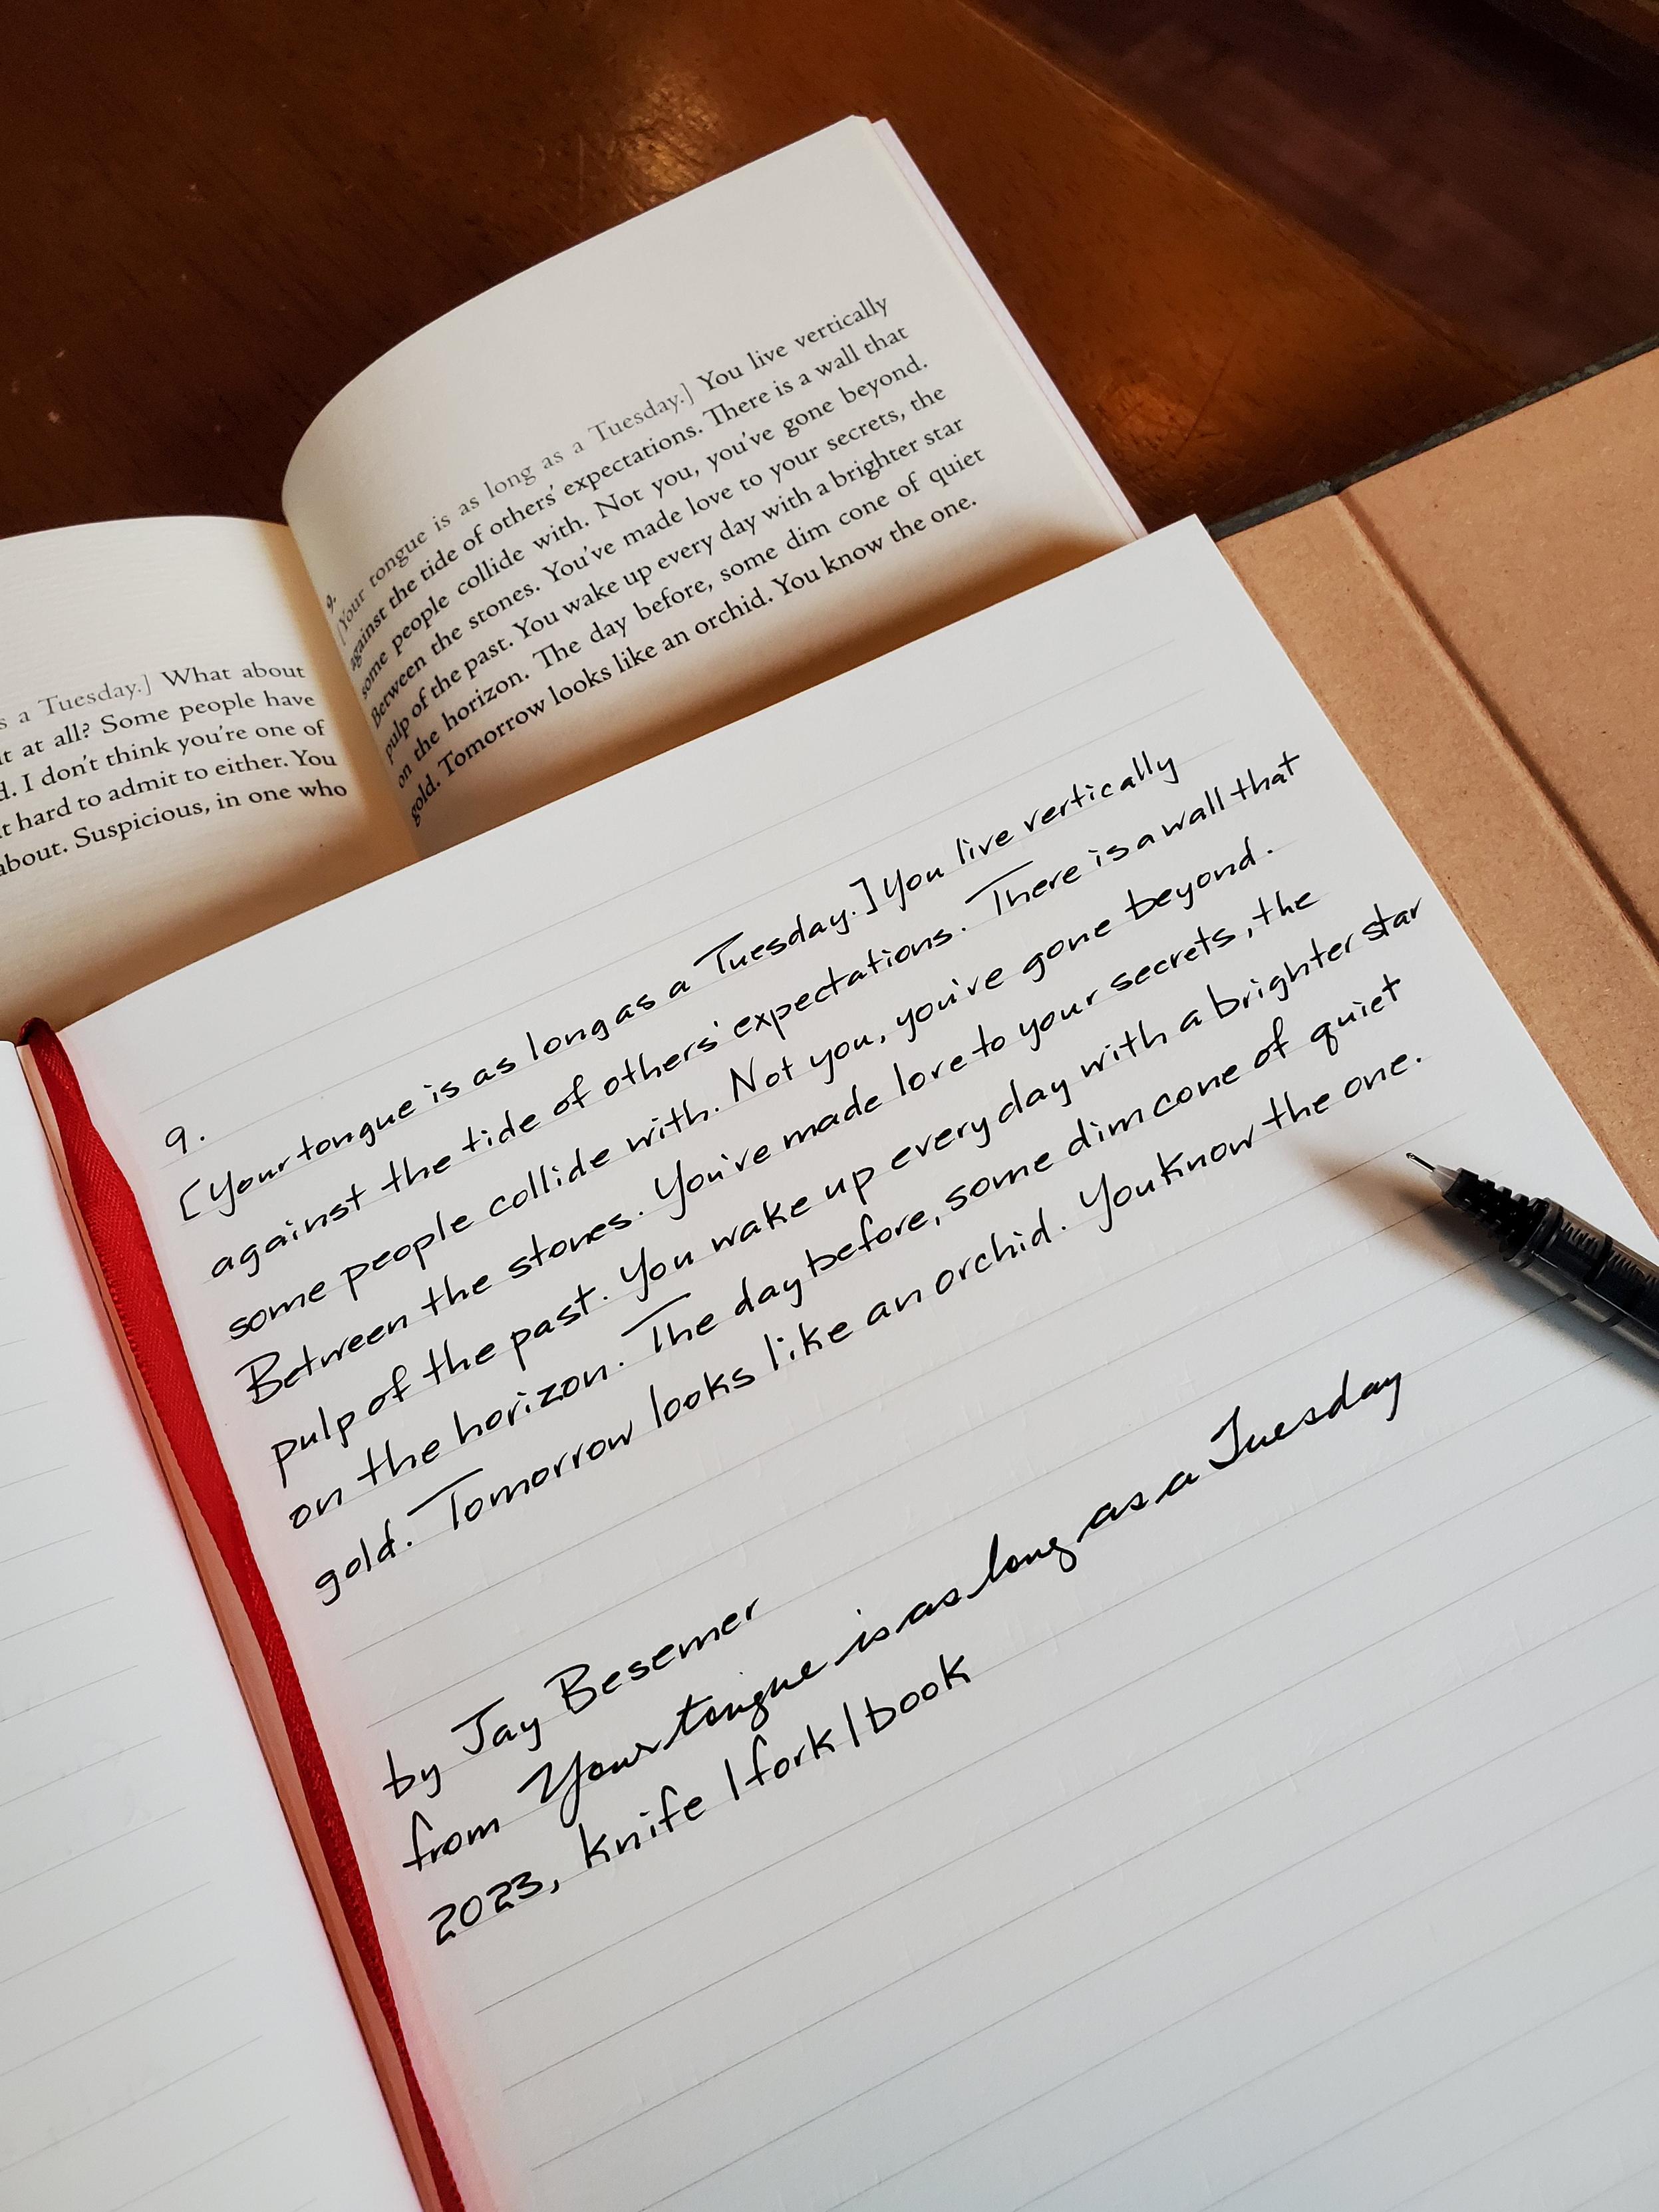 s a Tuesday.] What about
t at all? Some people have
d. I don't think you're one of
t hard to admit to either. You
about. Suspicious, in one who
9.
[Your tongue is as long as a Tuesday.] You live vertically
against the tide of others' expectations. There is a wall that
some people collide with. Not you, you've gone beyond.
Between the stones. You've made love to your secrets, the
pulp of the past. You wake up every day with a brighter star
on the horizon. The day before, some dim cone of quiet
gold. Tomorrow looks like an orchid. You know the one.
9.
[Your tongue is as long as a Tuesday.] You live vertically
against the tide of others' expectations. There is a wall that
some people collide with. Not you, you've gone beyond.
Between the stones. You've made love to your secrets, the
pulp of the past. You wake up every day with a brighter star
on the horizon. The day before, some dim cone of quiet
gold. Tomorrow looks like an orchid. You know the one.
by Jay Besemer
from Your tongue is as long as a Tuesday
2023, knife | fork | book